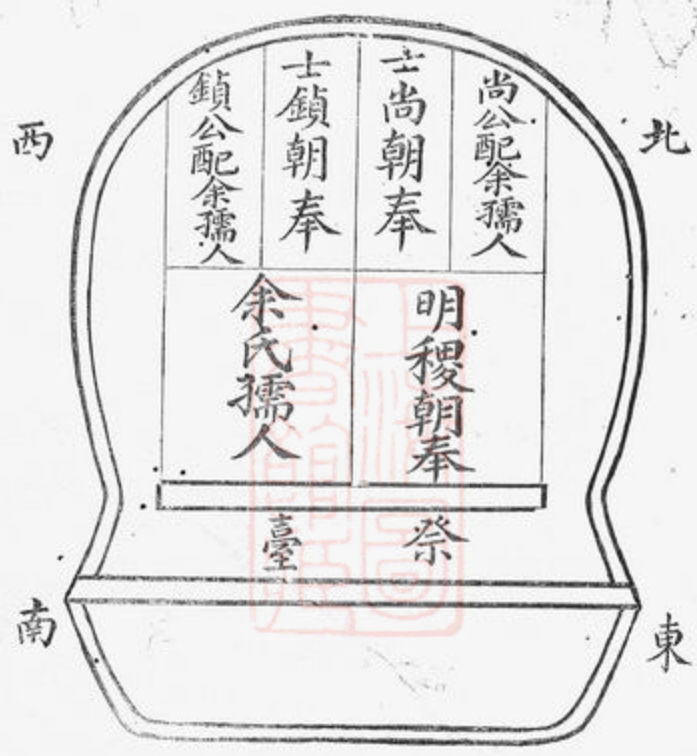 北
西
尚公配余孺人
士尚朝奉
士鎮朝奉
鎮公配余孺人
明稷朝奉
余氏孺人
祭臺
東
南